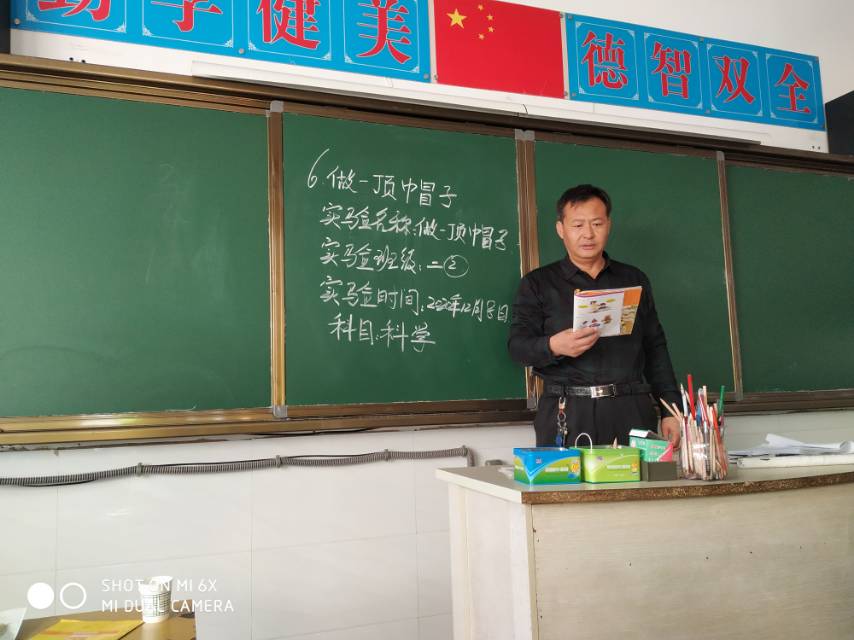 勤学健美
德智双全
6.做一顶帽子
实验名称:做一顶帽子
实验班级:二②
实验时间:2020年12月8日
科目:科学
SHOT ON MI 6X
MI DUAL CAMERA